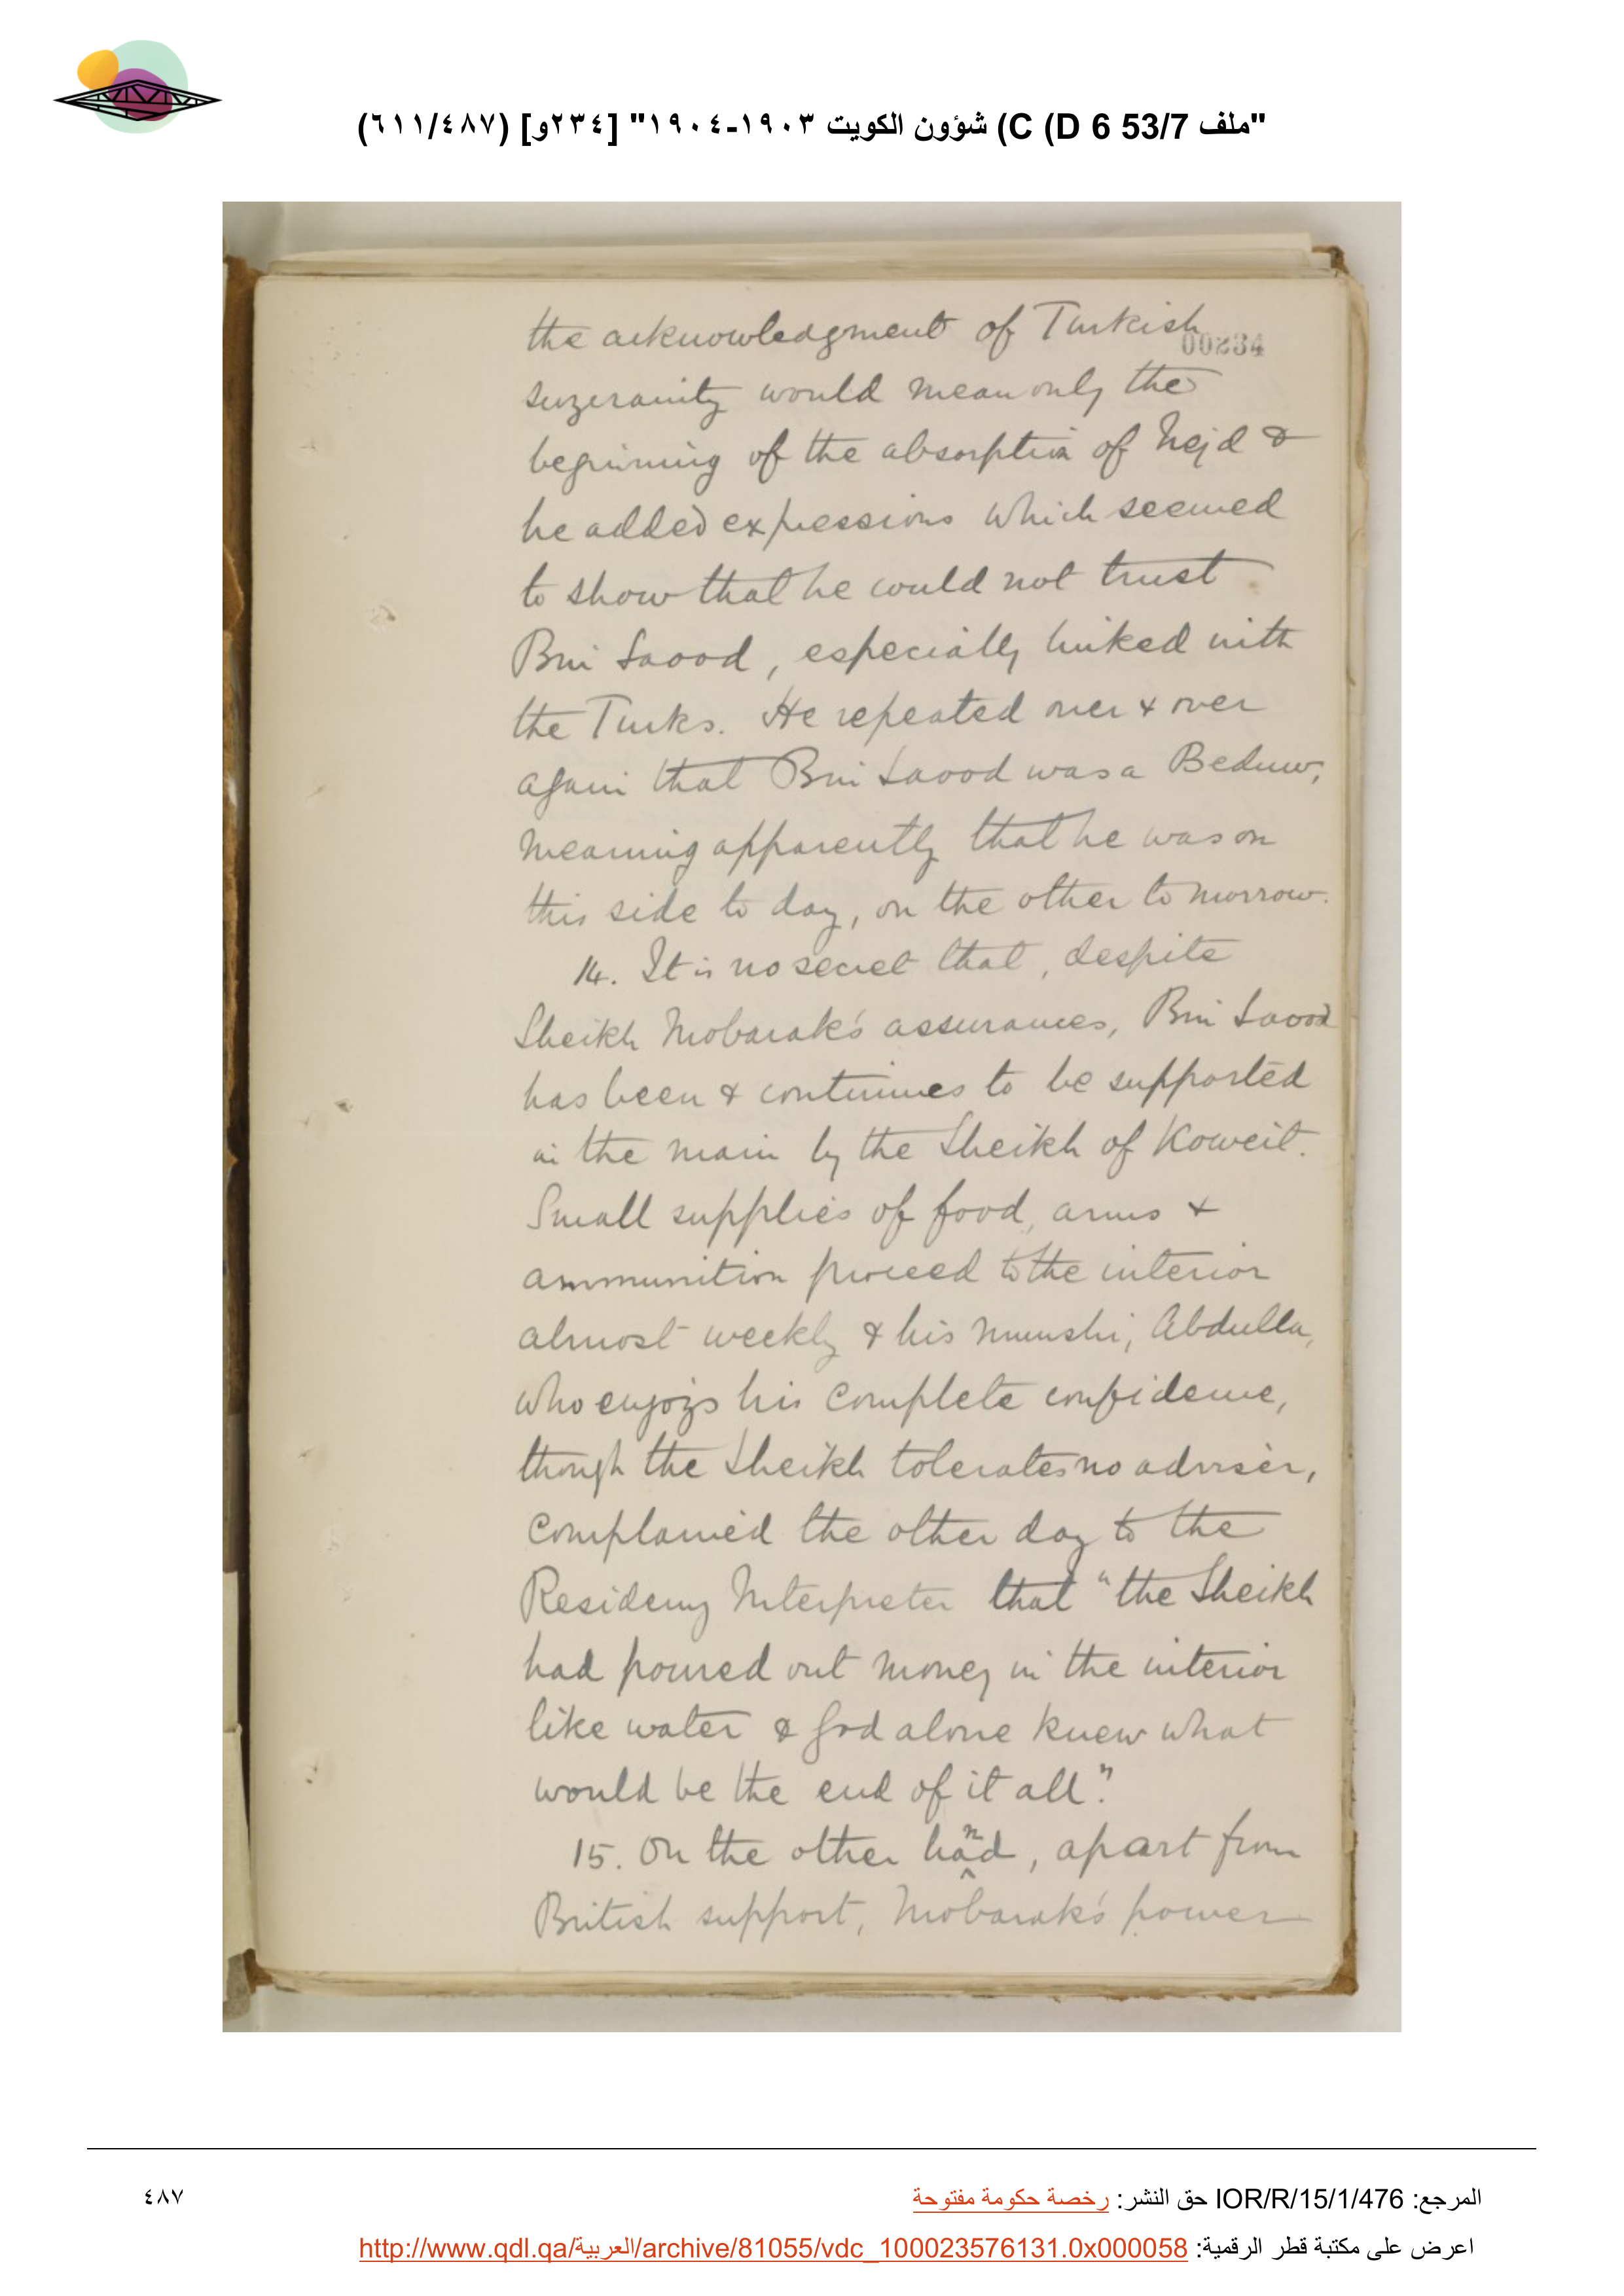 "ملف 53/7 C (D 6) شؤون الكويت ١٩٠٣-١٩٠٤" [٢٣٤و] (٦١١/٤٨٧)
00234
the acknowledgment of Turkish
suzerainty would mean only the
beginning of the absorption of Nejd &
he added expressions which seemed
to show that he could not trust
Bin Saood, especially linked with
the Turks. He repeated over & over
again that Bin Saood was a Beduw,
meaning apparently that he was on
this side to day, on the other to morrow.
14. It is no secret that, despite
Sheikh Mobarak's assurances, Bin Saood
has been & continues to be supported
in the main by the Sheikh of Koweit.
Small supplies of food, arms &
ammunition proceed to the interior
almost weekly & his munshi, Abdulla,
who enjoys his complete confidence,
though the Sheikh tolerates no adviser,
complained the other day to the
Residency Interpreter that "the Sheikh
had poured out money in the interior
like water & God alone knew what
would be the end of it all."
15. On the other hand, apart from
British support, Mobarak's power
المرجع: IOR/R/15/1/476 حق النشر: رخصة حكومة مفتوحة
٤٨٧
اعرض على مكتبة قطر الرقمية: http://www.qdl.qa/العربية/archive/81055/vdc_100023576131.0x000058